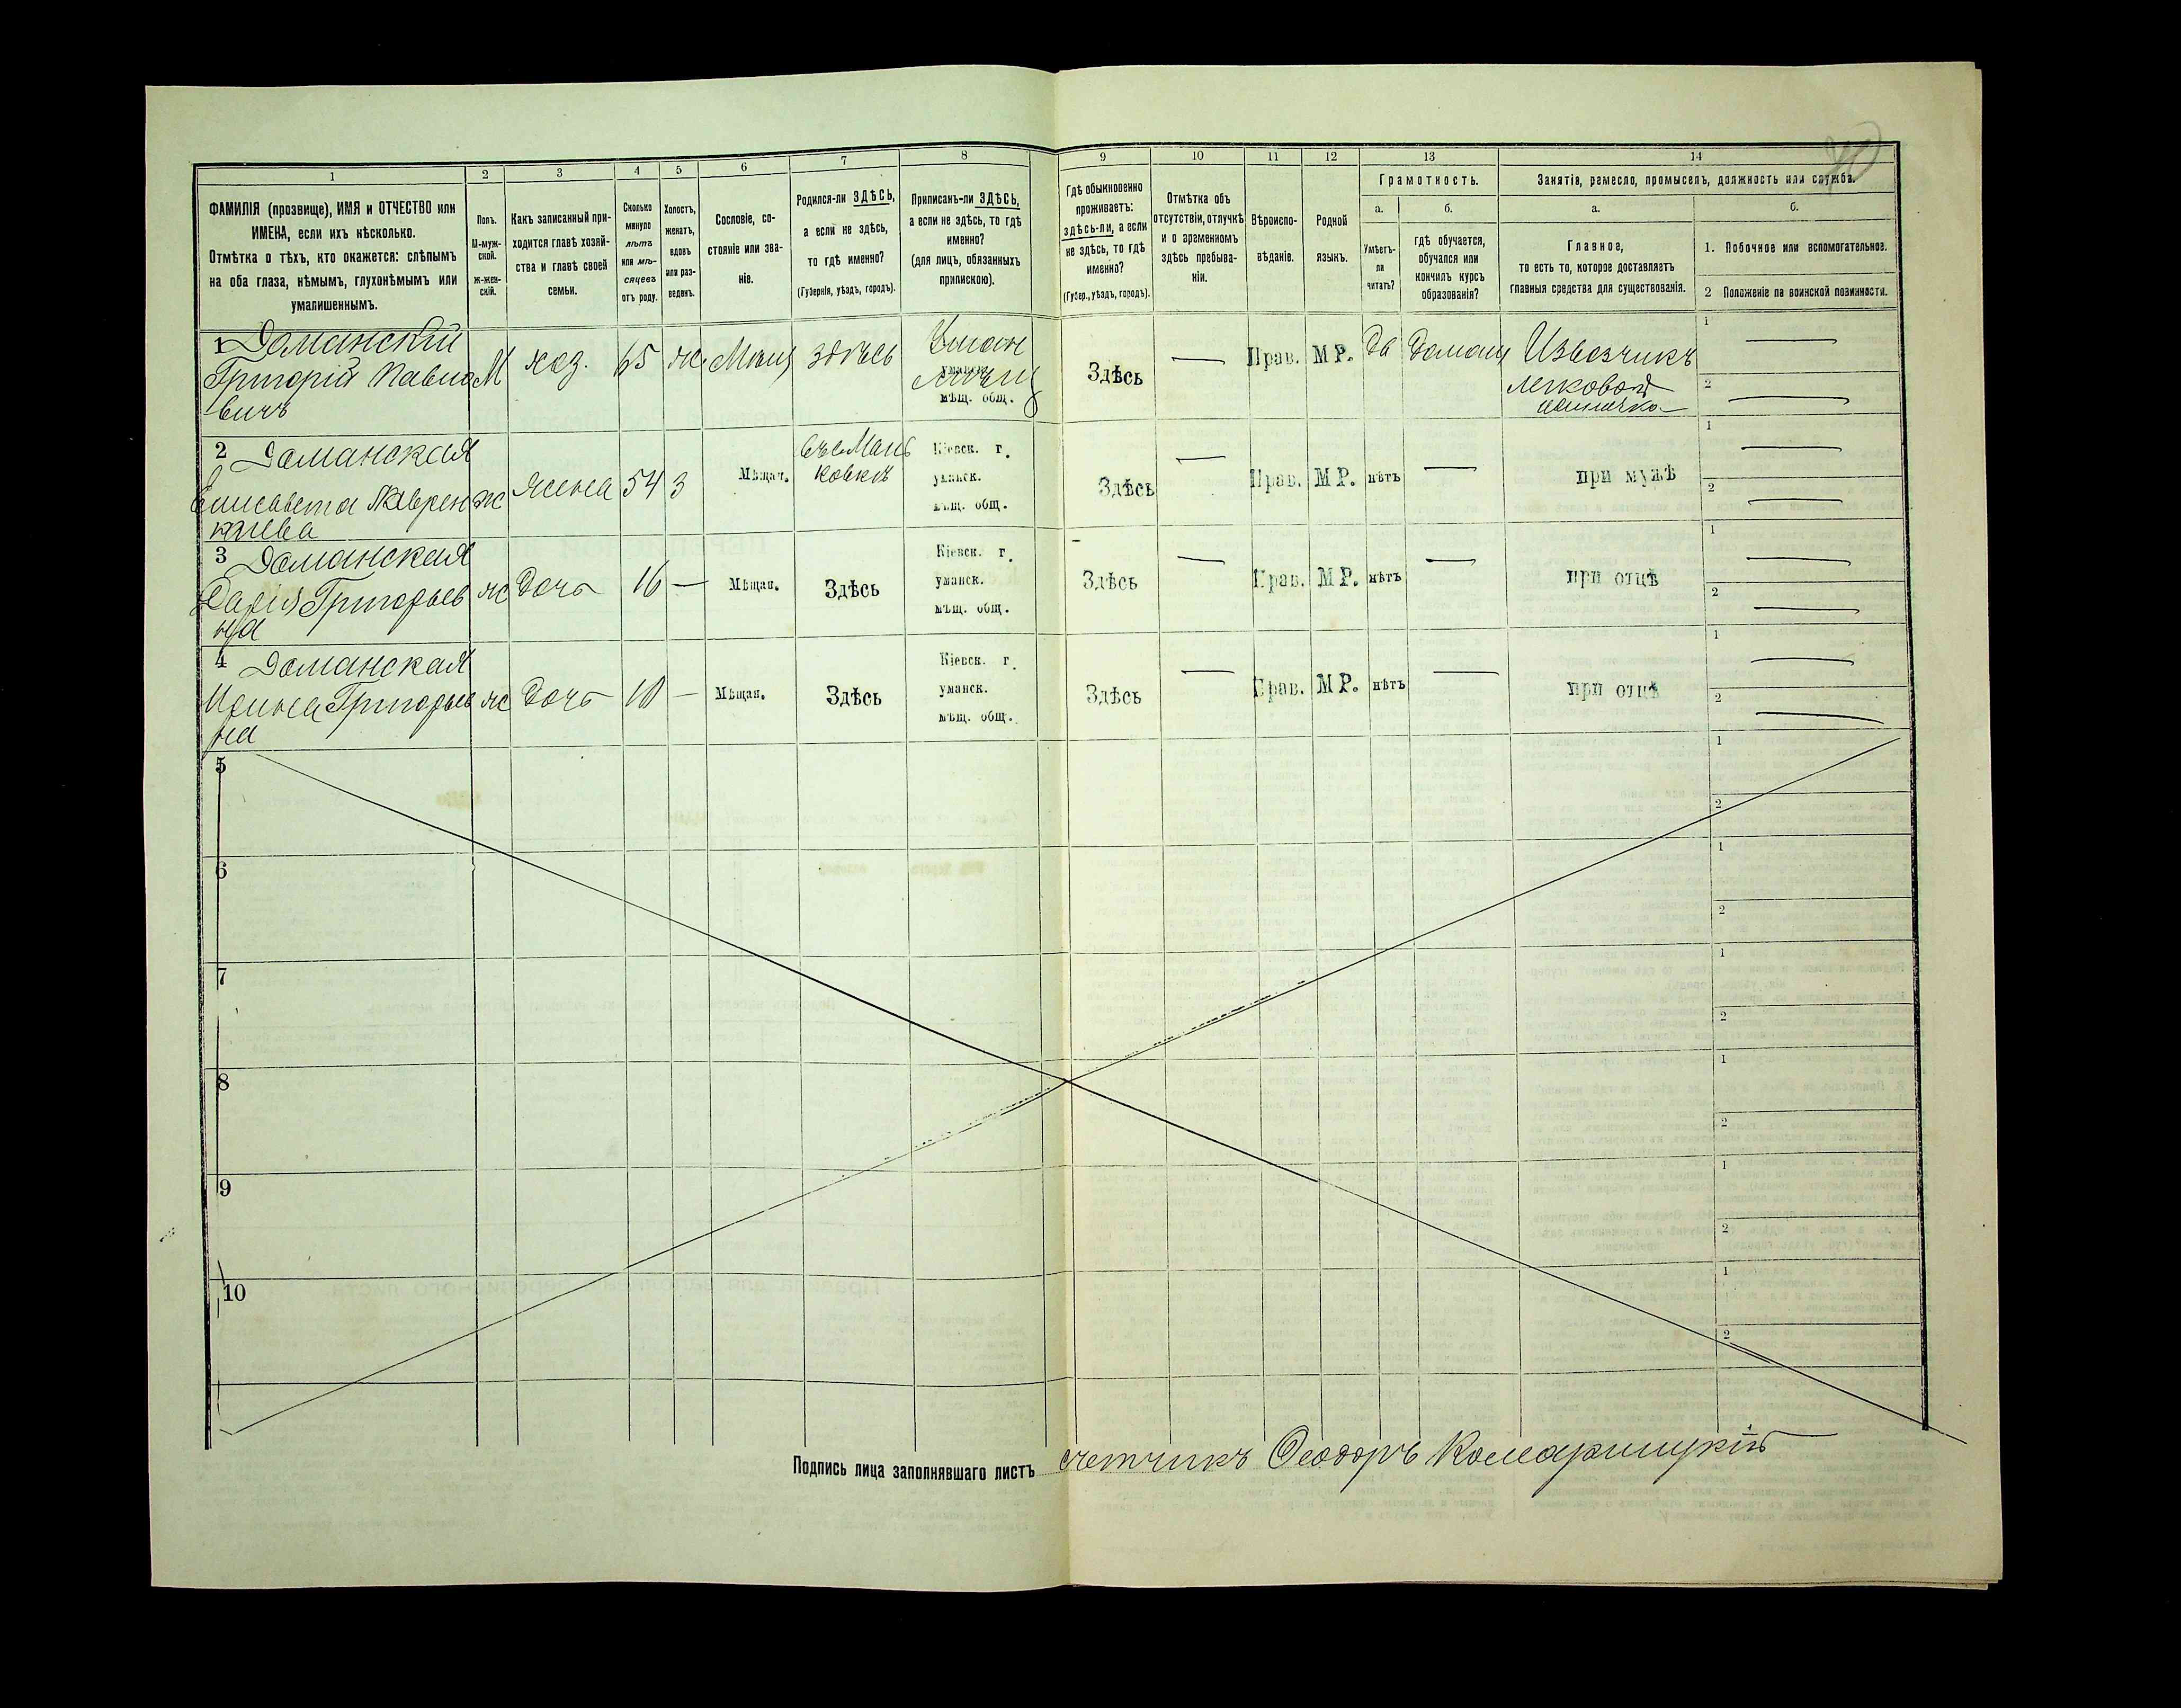 1
2
3
4
5
6
7
8
9
10
11
12
13
14
ФАМИЛІЯ (прозвище), ИМЯ и ОТЧЕСТВО или
ИМЕНА, если ихъ нѣсколько.
Отмѣтка о тѣхъ, кто окажется: слѣпымъ
на оба глаза, нѣмымъ, глухонѣмымъ или
умалишеннымъ.
Полъ.
М-муж-
ской.
ж-жен-
скій.
Какъ записанный при-
ходится главѣ хозяй-
ства и главѣ своей
семьи.
Сколько
минуло
лѣтъ
или мѣ-
сяцевъ
отъ роду.
Холостъ,
женатъ,
вдовъ
или раз-
веденъ.
Сословіе, со-
стояніе или зва-
ніе.
Родился-ли ЗДѢСЬ,
а если не здѣсь,
то гдѣ именно?
(Губернія, уѣздъ, городъ).
Приписанъ-ли ЗДѢСЬ,
а если не здѣсь, то гдѣ
именно?
(для лицъ, обязанныхъ
припискою).
Гдѣ обыкновенно
проживаетъ:
здѣсь-ли, а если
не здѣсь, то гдѣ
именно?
(Губер., уѣздъ, городъ).
Отмѣтка объ
отсутствіи, отлучкѣ
и о временномъ
здѣсь пребыва-
ніи.
Вѣроиспо-
вѣданіе.
Родной
языкъ.
Грамотность.
а.
б.
Умѣетъ-
ли
читать?
гдѣ обучается,
обучался или
кончилъ курсъ
образованія?
Занятія, ремесло, промыселъ, должность или служба.
а.
б.
Главное,
то есть то, которое доставляетъ
главныя средства для существованія.
1. Побочное или вспомогательное.
2 Положеніе по воинской повинности.
1 Доманскій
Григорій Павло
вичъ
М
хоз.
65
ж
Мѣщ
здѣсь
Уман
мѣщ. общ.
Здѣсь
—
Прав.
МР.
да
Домащ
Извозчикъ
легковой
1 —
2 —
2 Доманская
Елисавета Лаврен
тіева
ж
жена
54
З
Мѣщан.
въ с Мань
ковкѣ
Кіевск. г.
уманск.
мѣщ. общ.
Здѣсь
—
Прав.
МР.
нѣтъ
—
при мужѣ
1 —
2 —
3 Доманская
Дарія Григорьев
на
ж
Дочь
16
—
Мѣщан.
Здѣсь
Кіевск. г.
уманск.
мѣщ. общ.
Здѣсь
—
Прав.
МР.
нѣтъ
—
при отцѣ
1 —
2 —
4 Доманская
Ирина Григорьев
на
ж
Дочь
10
—
Мѣщан.
Здѣсь
Кіевск. г.
уманск.
мѣщ. общ.
Здѣсь
—
Прав.
МР.
нѣтъ
—
при отцѣ
1 —
2 —
5
1
2
6
1
2
7
1
2
8
1
2
9
1
2
10
1
2
Подпись лица заполнявшаго листъ счетчикъ Ѳеодоръ Комарницкій